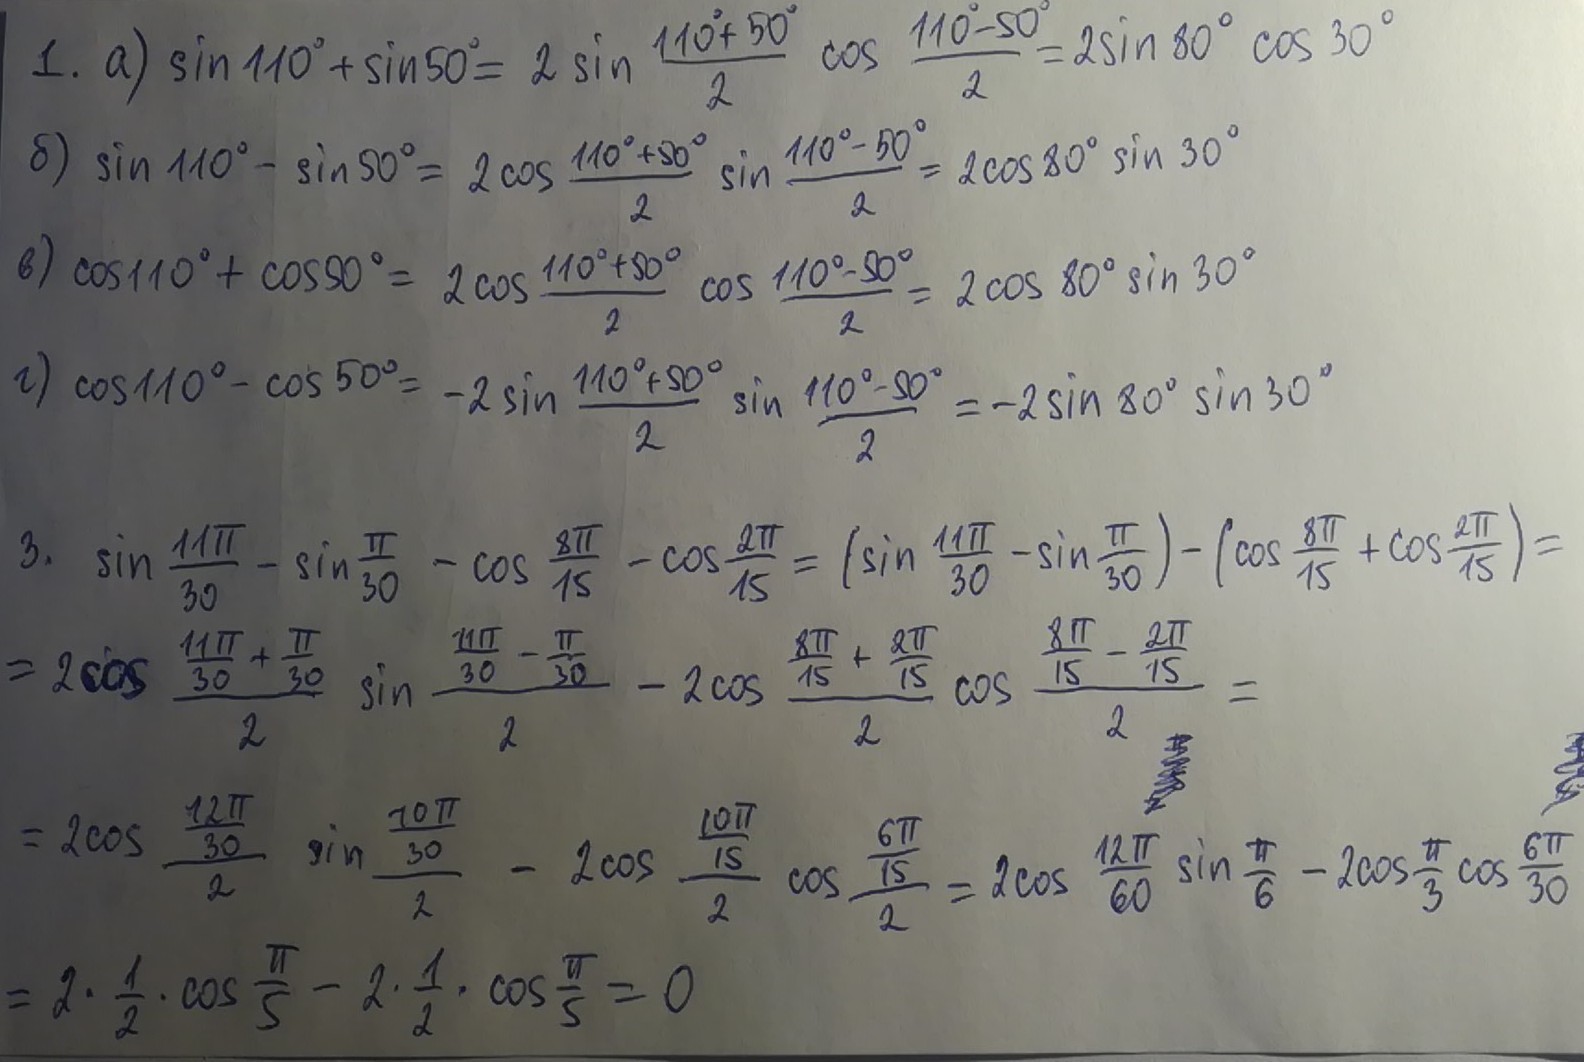 1. а) sin 110° + sin 50° = 2 sin (110°+50°)/2 cos (110°-50°)/2 = 2sin 80° cos 30°
б) sin 110° - sin 50° = 2cos (110°+50°)/2 sin (110°-50°)/2 = 2cos 80° sin 30°
в) cos110° + cos50° = 2cos (110°+50°)/2 cos (110°-50°)/2 = 2cos 80° sin 30°
г) cos110° - cos 50° = -2sin (110°+50°)/2 sin (110°-50°)/2 = -2sin 80° sin 30°
3. sin 11π/30 - sin π/30 - cos 8π/15 - cos 2π/15 = (sin 11π/30 - sin π/30) - (cos 8π/15 + cos 2π/15) =
= 2cos (11π/30 + π/30)/2 sin (11π/30 - π/30)/2 - 2cos (8π/15 + 2π/15)/2 cos (8π/15 - 2π/15)/2 =
= 2cos (12π/30)/2 sin (10π/30)/2 - 2cos (10π/15)/2 cos (6π/15)/2 = 2cos 12π/60 sin π/6 - 2cos π/3 cos 6π/30
= 2 · 1/2 · cos π/5 - 2 · 1/2 · cos π/5 = 0